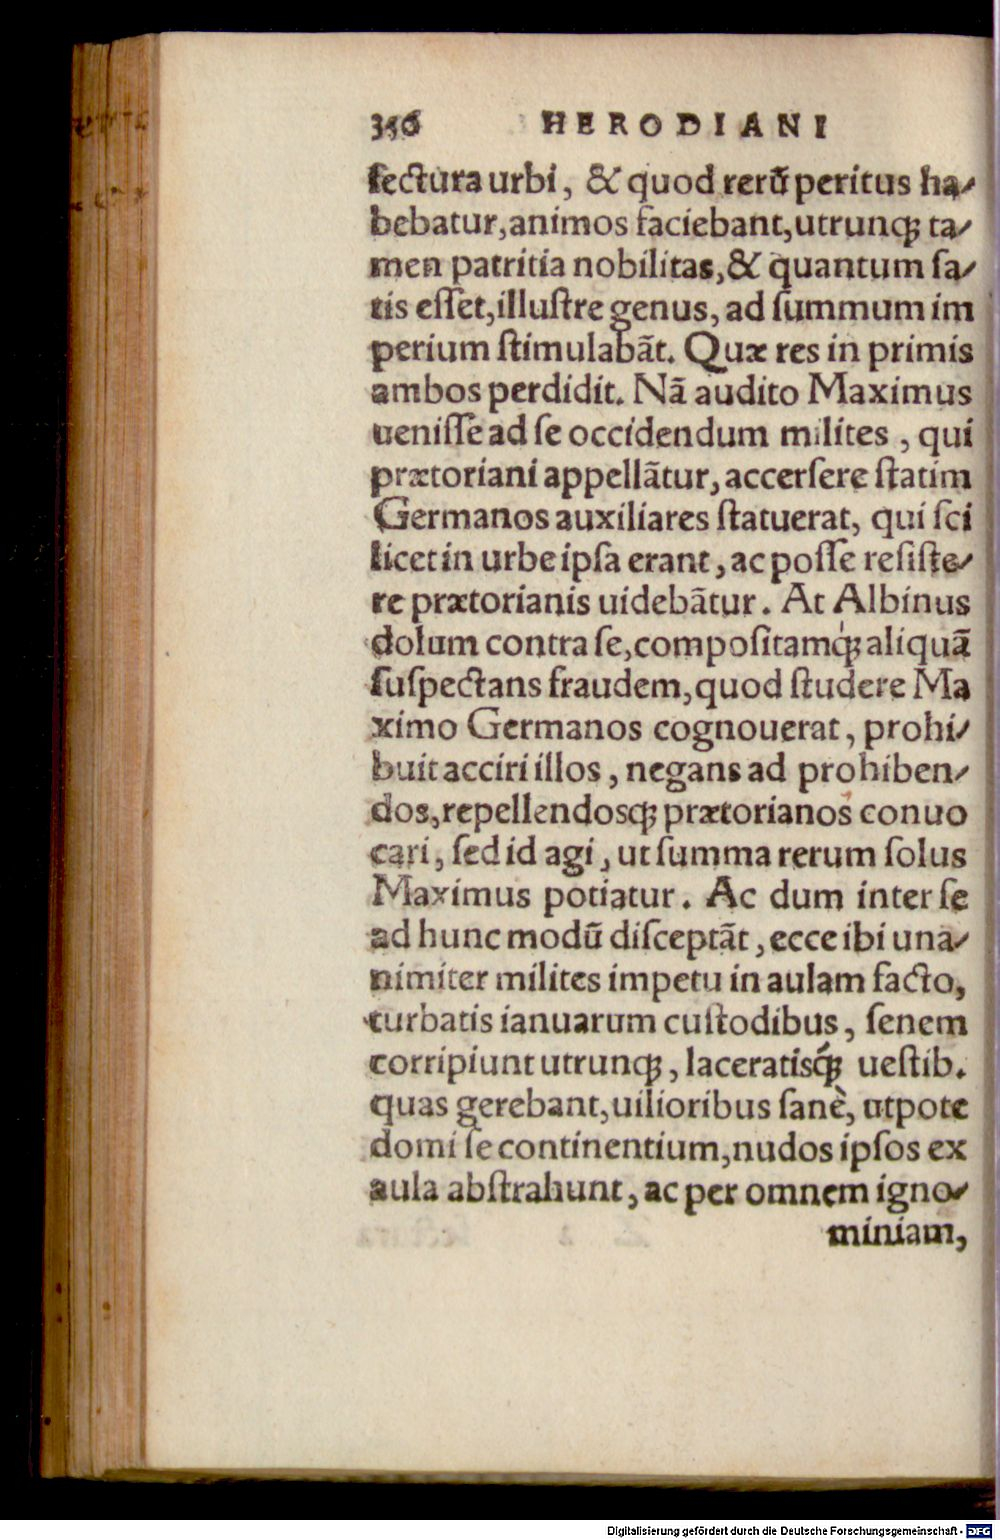 356 HERODIANI
fectura urbi, & quod rerū peritus ha-
bebatur, animos faciebant, utrunq; ta-
men patritia nobilitas, & quantum ſa-
tis eſſet, illuſtre genus, ad ſummum im
perium ſtimulabāt. Quæ res in primis
ambos perdidit. Nā audito Maximus
ueniſſe ad ſe occidendum milites, qui
prætoriani appellātur, accerſere ſtatim
Germanos auxiliares ſtatuerat, qui ſci
licet in urbe ipſa erant, ac poſſe reſiſte-
re prætorianis uidebātur. At Albinus
dolum contra ſe, compoſitamq́; aliquā
ſuſpectans fraudem, quod ſtudere Ma
ximo Germanos cognouerat, prohi-
buit acciri illos, negans ad prohiben-
dos, repellendosq; prætorianos conuo
cari, ſed id agi, ut ſumma rerum ſolus
Maximus potiatur. Ac dum inter ſe
ad hunc modū diſceptāt, ecce ibi una-
nimiter milites impetu in aulam facto,
turbatis ianuarum cuſtodibus, ſenem
corripiunt utrunq;, laceratisq́; ueſtib.
quas gerebant, uilioribus ſanè, utpote
domi ſe continentium, nudos ipſos ex
aula abſtrahunt, ac per omnem igno-
miniam,
Digitalisierung gefördert durch die Deutsche Forschungsgemeinschaft - DFG